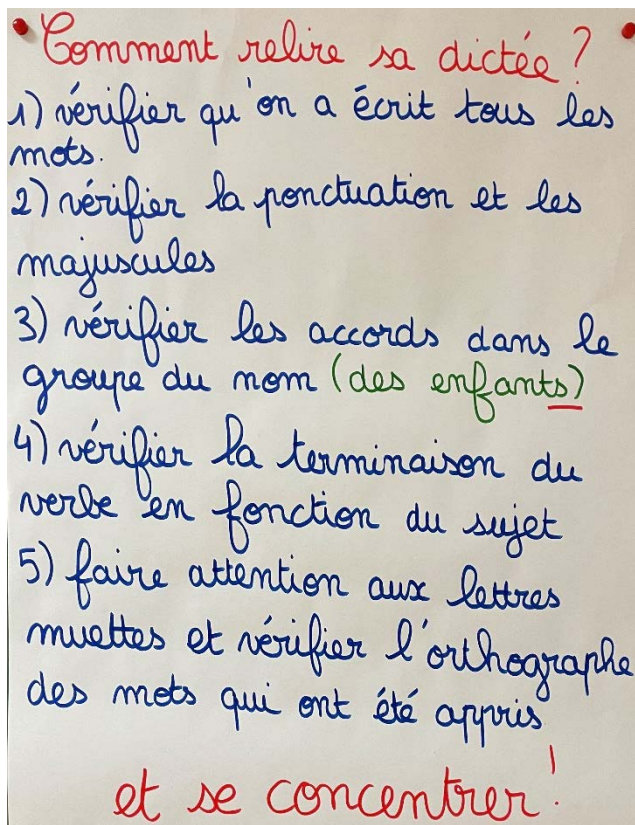 Comment relire sa dictée ?
1) vérifier qu'on a écrit tous les
mots.
2) vérifier la ponctuation et les
majuscules
3) vérifier les accords dans le
groupe du nom (des enfants)
4) vérifier la terminaison du
verbe en fonction du sujet
5) faire attention aux lettres
muettes et vérifier l'orthographe
des mots qui ont été appris
et se concentrer !